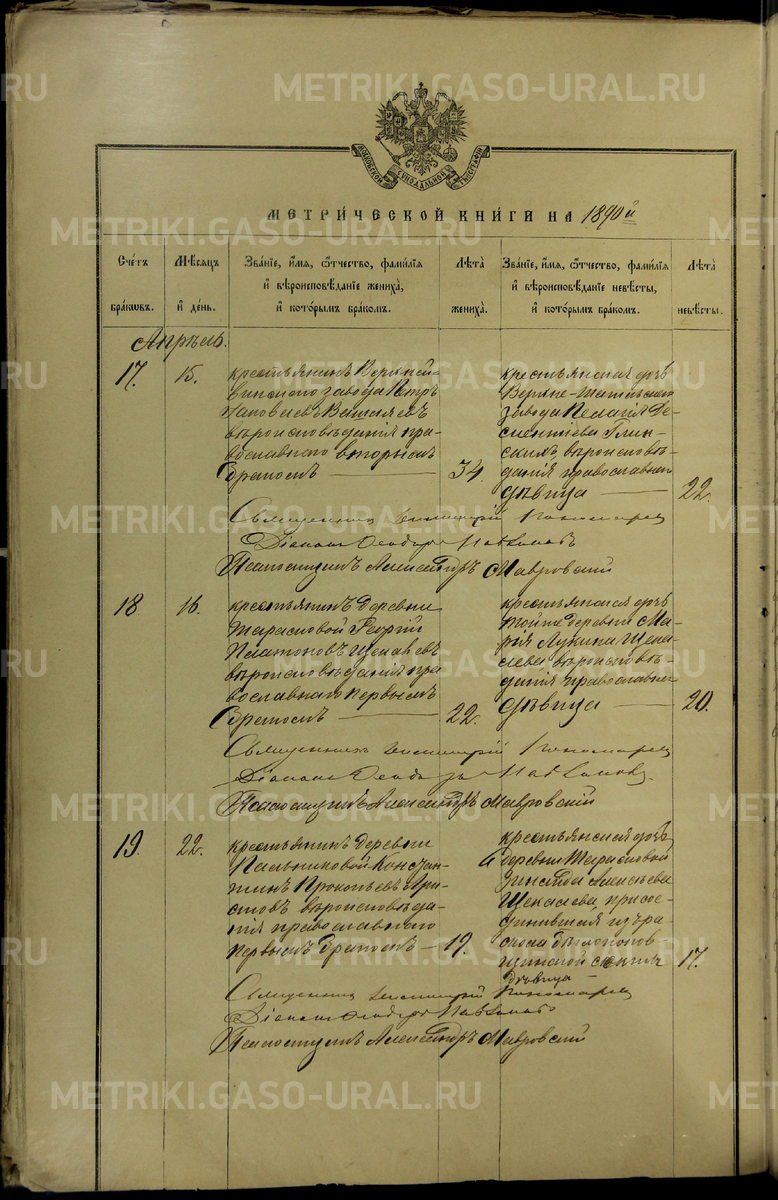 METRIKI.GASO-URAL.RU
МОСКОВСКОЙ СѴНОДАЛЬНОЙ ТИПОГРАФІИ
МЕТРИ́ЧЕСКОЙ КНИ́ГИ НА 1890й
Сче́тъ бра́кѡвъ.
Мѣ́сяцъ и҆ де́нь.
Зва́нїе, и҆́мѧ, ѻ҆́тчество, фамѵ́лїѧ
и҆ вѣроисповѣ́данїе жениха̀,
и҆ кото́рымъ бра́комъ.
Лѣ́та жениха̀.
Зва́нїе, и҆́мѧ, ѻ҆́тчество, фамѵ́лїѧ
и҆ вѣроисповѣ́данїе невѣ́сты,
и҆ кото́рымъ бра́комъ.
Лѣ́та невѣ́сты.
Апрѣль.
17. 15.
крестьянинъ Верхней-
винского завода Петръ
вѣроисповѣданія пра-
вославнаго вторымъ
бракомъ — 34.
крестьянская дочь
Верхне-Тагильскаго
завода Пелагія Де-
ментіева Глин-
скихъ, вѣроисповѣ-
данія православнаго
дѣвица — 22.
Священникъ Димитрій Пономаревъ
Діаконъ Ѳеодоръ
Псаломщикъ Александръ Мавровскій
18 16.
крестьянинъ деревни
Тарасковой Георгій
Платоновъ Щекалевъ
вѣроисповѣданія пра
вославнаго первымъ
бракомъ — 22.
крестьянская дочь
тойже деревни Ма-
рія Лукина Щека-
лева вѣроисповѣ-
данія православнаго
дѣвица — 20.
Священникъ Димитрій Пономаревъ
Діаконъ Ѳеодоръ
Псаломщикъ Александръ Мавровскій
19. 22.
крестьянинъ деревни
Пальниковой Констан-
тинъ Прокопьевъ Ари-
стовъ вѣроисповѣда-
нія православнаго
первымъ бракомъ — 19.
крестьянская дочь
деревни Тарасковой
Зинаида Алексѣева
Щекалева, присое-
динившая изъ ра-
скола
дѣвица — 17.
Священникъ Димитрій Пономаревъ
Діаконъ Ѳеодоръ
Псаломщикъ Александръ Мавровскій